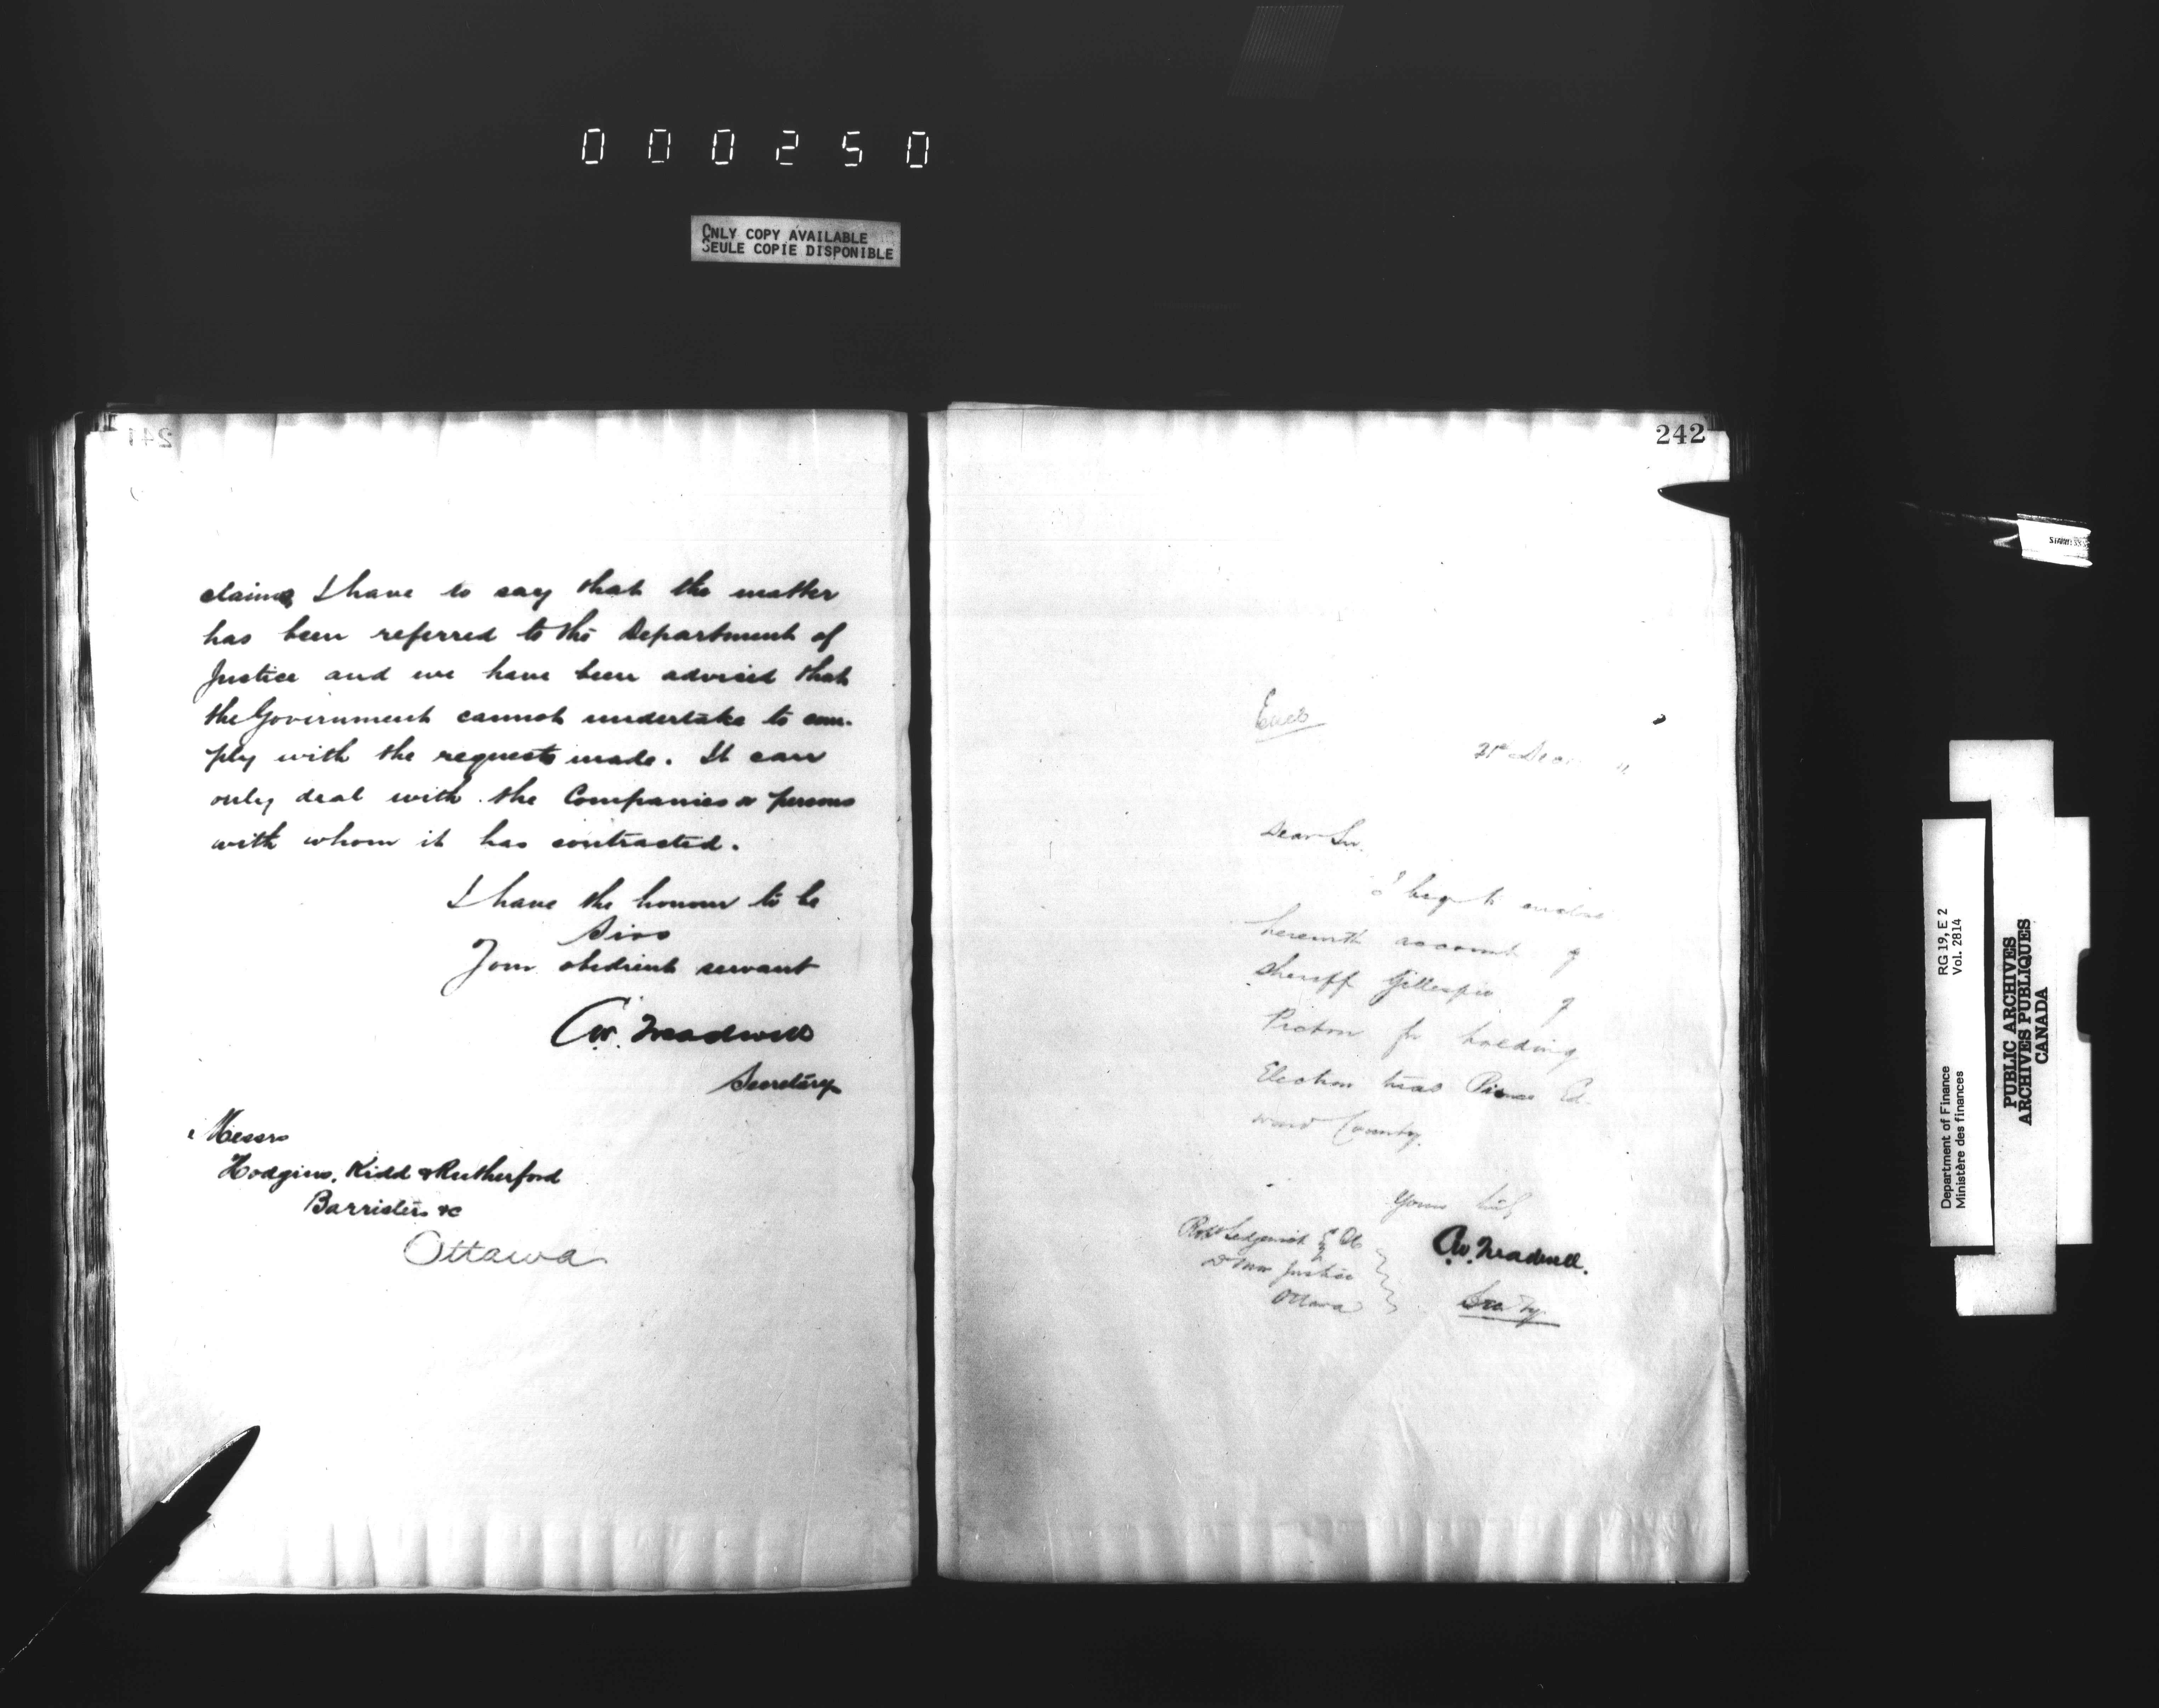 000250
ONLY COPY AVAILABLE
SEULE COPIE DISPONIBLE
241
claims I have to say that the matter
has been referred to the Department of
Justice and we have been advised that
the Government cannot undertake to com-
ply with the requests made. It can
only deal with the Companies or persons
with whom it has contracted.
I have the honour to be
Sirs
Your obedient servant
CW. Treadwell
Secretary
Messrs
Hodgins, Kidd & Rutherford
Barristers &c
Ottawa
242
Encl
31st Dec
Dear Sir.
I beg to enclose
herewith account of
Sheriff Gillespie of
Picton for holding
Election trial Prince Ed-
ward County.
Yours truly
CW. Treadwell.
Secty
Robt Sedgewick Esq QC
D Min Justice
Ottawa
Department of Finance RG 19, E 2
Ministère des finances Vol. 2814
PUBLIC ARCHIVES
ARCHIVES PUBLIQUES
CANADA